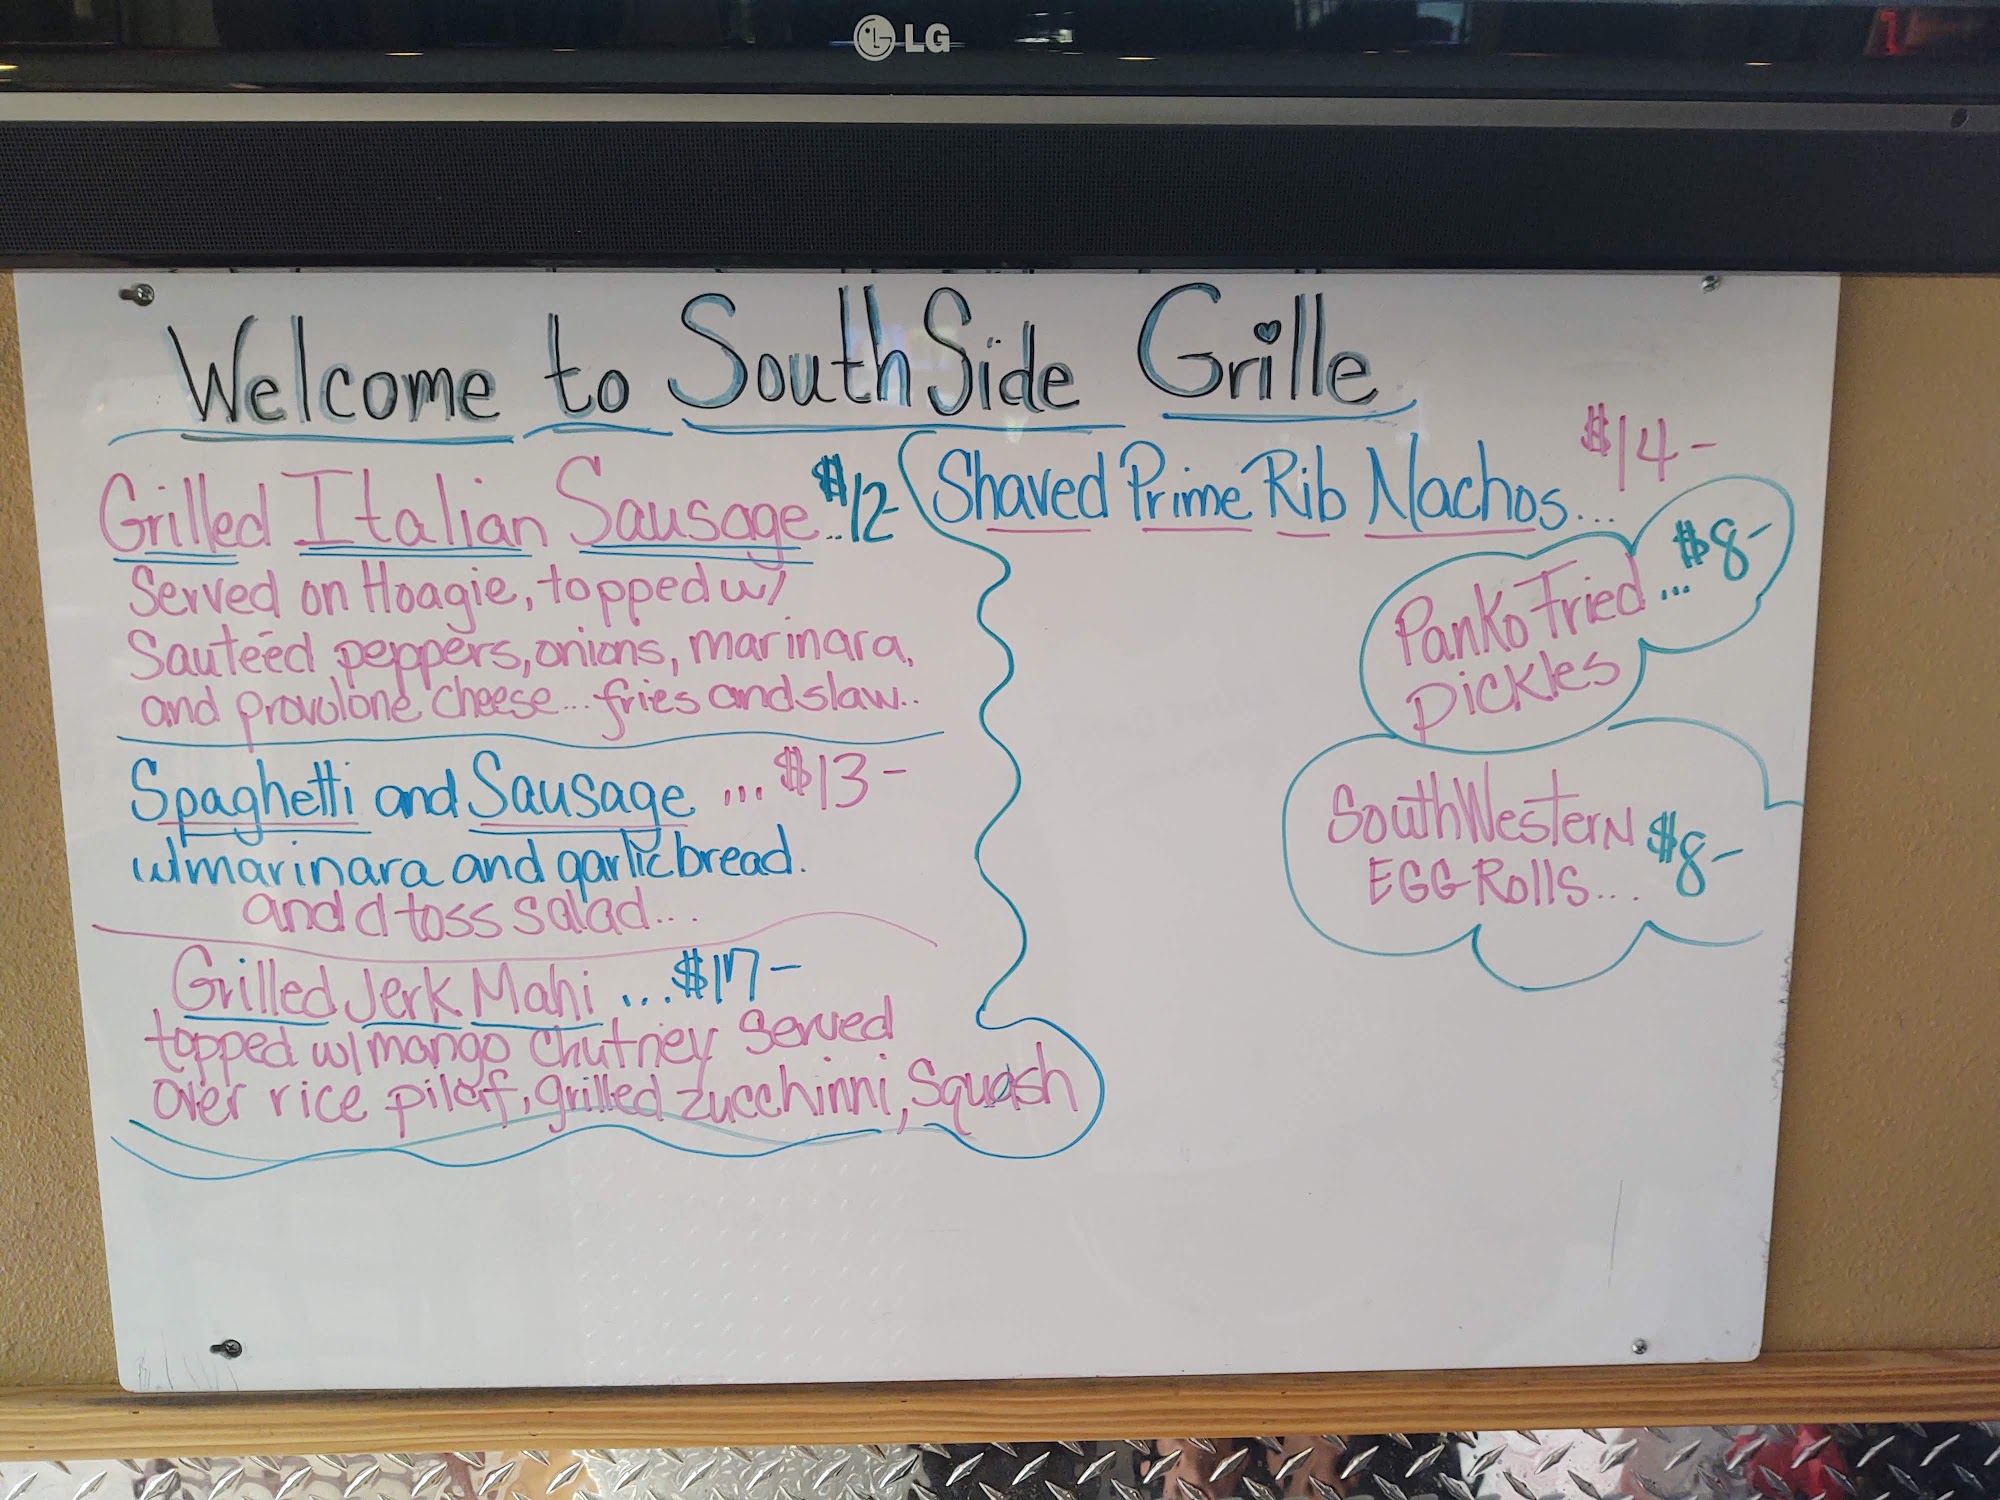 LG
Welcome to SouthSide Grille
Grilled Italian Sausage..$12-
Served on Hoagie, topped w/
Sauteéd peppers, onions, marinara,
and provolone cheese... fries and slaw..
Spaghetti and Sausage ... $13-
w/marinara and garlic bread.
and a toss salad...
Grilled Jerk Mahi ...$17-
topped w/mango chutney served
over rice pilaf, grilled zucchinni, squash
Shaved Prime Rib Nachos... $14-
Panko Fried ... $8-
Pickles
SouthWestern $8-
EGG Rolls...